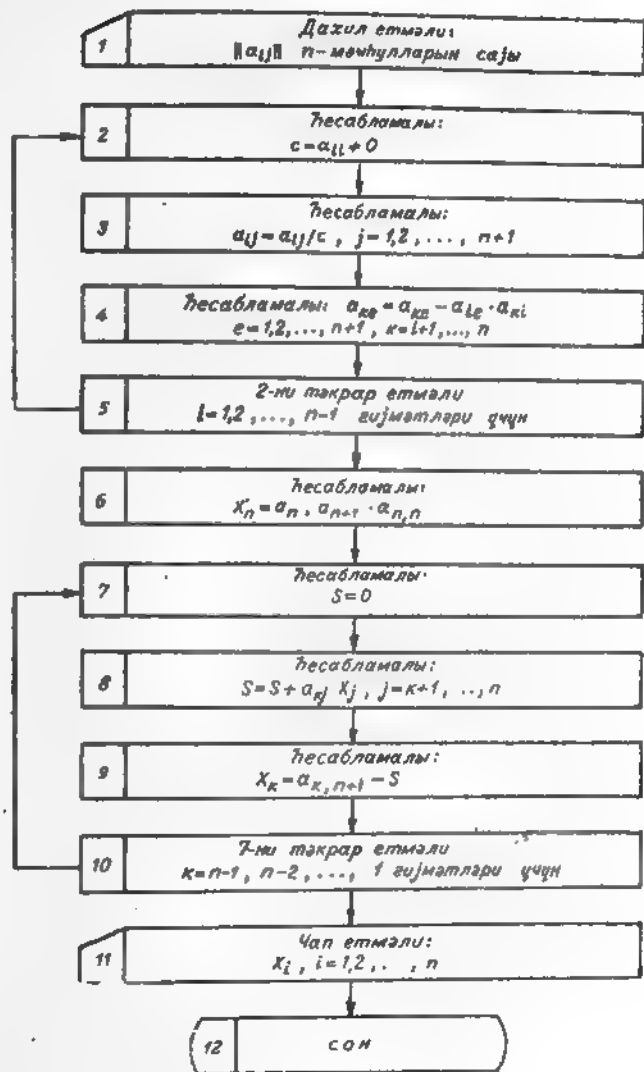 1
Дахил етмәли:
‖aij‖ n-мәчһулларын сајы
2
Һесабламалы:
c=aii≠0
3
Һесабламалы:
aij=aij/c, j=1,2,..., n+1
4
Һесабламалы: aкe=aкe–aie·aкi
e=1,2,..., n+1, к=i+1,..., n
5
2-ни тәкрар етмәли
i=1,2,..., n-1 гијмәтләри үчүн
6
Һесабламалы:
Xn=an, an+1·an,n
7
Һесабламалы:
S=0
8
Һесабламалы:
S=S+aкj Xj, j=к+1, ..,n
9
Һесабламалы:
Xк=aк,n+1–S
10
7-ни тәкрар етмәли
к=n-1, n-2, ..., 1 гијмәтләри үчүн
11
Чап етмәли:
Xi, i=1,2,..., n
12
сон